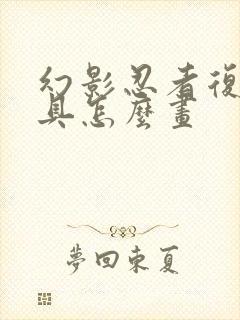 幻影忍者復
具怎麼畫
夢回東夏